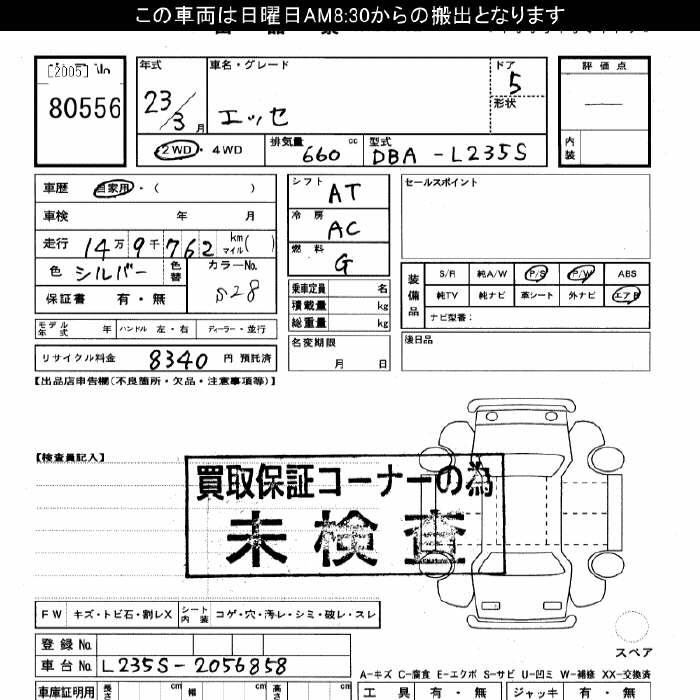 この車両は日曜日AM8:30からの搬出となります
[2005]
80556
年式 車名・グレード ドア 評価点
23/3月 エッセ 5
形状
2WD・4WD 排気量 660 cc 型式 DBA-L235S 内装
車歴 自家用・( )
車検 年 月
走行 14万9千762 km マイル( )
色 シルバー 色替 カラーNo. S28
保証書 有・無
シフト AT
冷房 AC
燃料 G
乗車定員 名
積載量 kg
総重量 kg
セールスポイント
装備品 S/R 純A/W P/S P/W ABS
純TV 純ナビ 革シート 外ナビ エアB
ナビ型番:
モデル年式 年 ハンドル 左・右 ディーラー・並行
名変期限 月 日
後日品
リサイクル料金 8340 円 預託済
【出品店申告欄(不良箇所・欠品・注意事項等)】
【検査員記入】
買取保証コーナーの為
未検査
FW キズ・トビ石・割レX シート内装 コゲ・穴・汚レ・シミ・破レ・スレ
スペア
登録No.
車台No. L235S-2056858
A-キズ C-腐食 E-エクボ S-サビ U-凹ミ W-補修 XX-交換済
車庫証明用 長さ cm 幅 cm 高さ cm 工具 有・無 ジャッキ 有・無